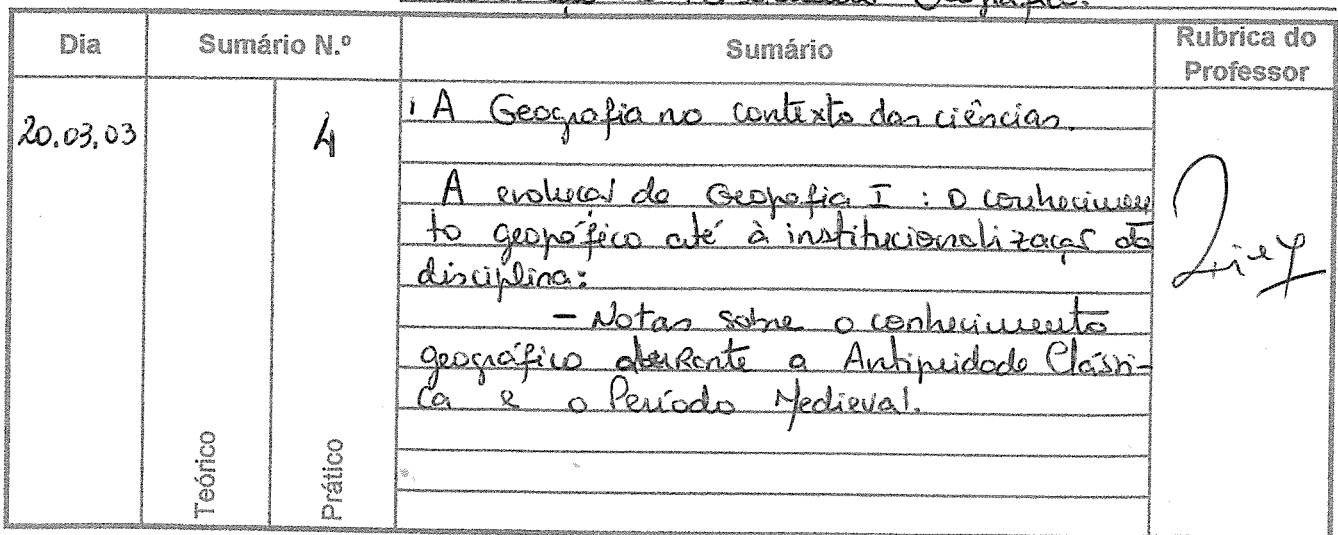 Dia Sumário N.º Sumário Rubrica do Professor
20.03.03 4 A Geografia no contexto das ciências.
A evolução da Geografia I : O conhecimen
to geográfico até à institucionalização da
disciplina:
- Notas sobre o conhecimento
geográfico durante a Antiguidade Clássi-
ca e o Período Medieval.
Teórico Prático